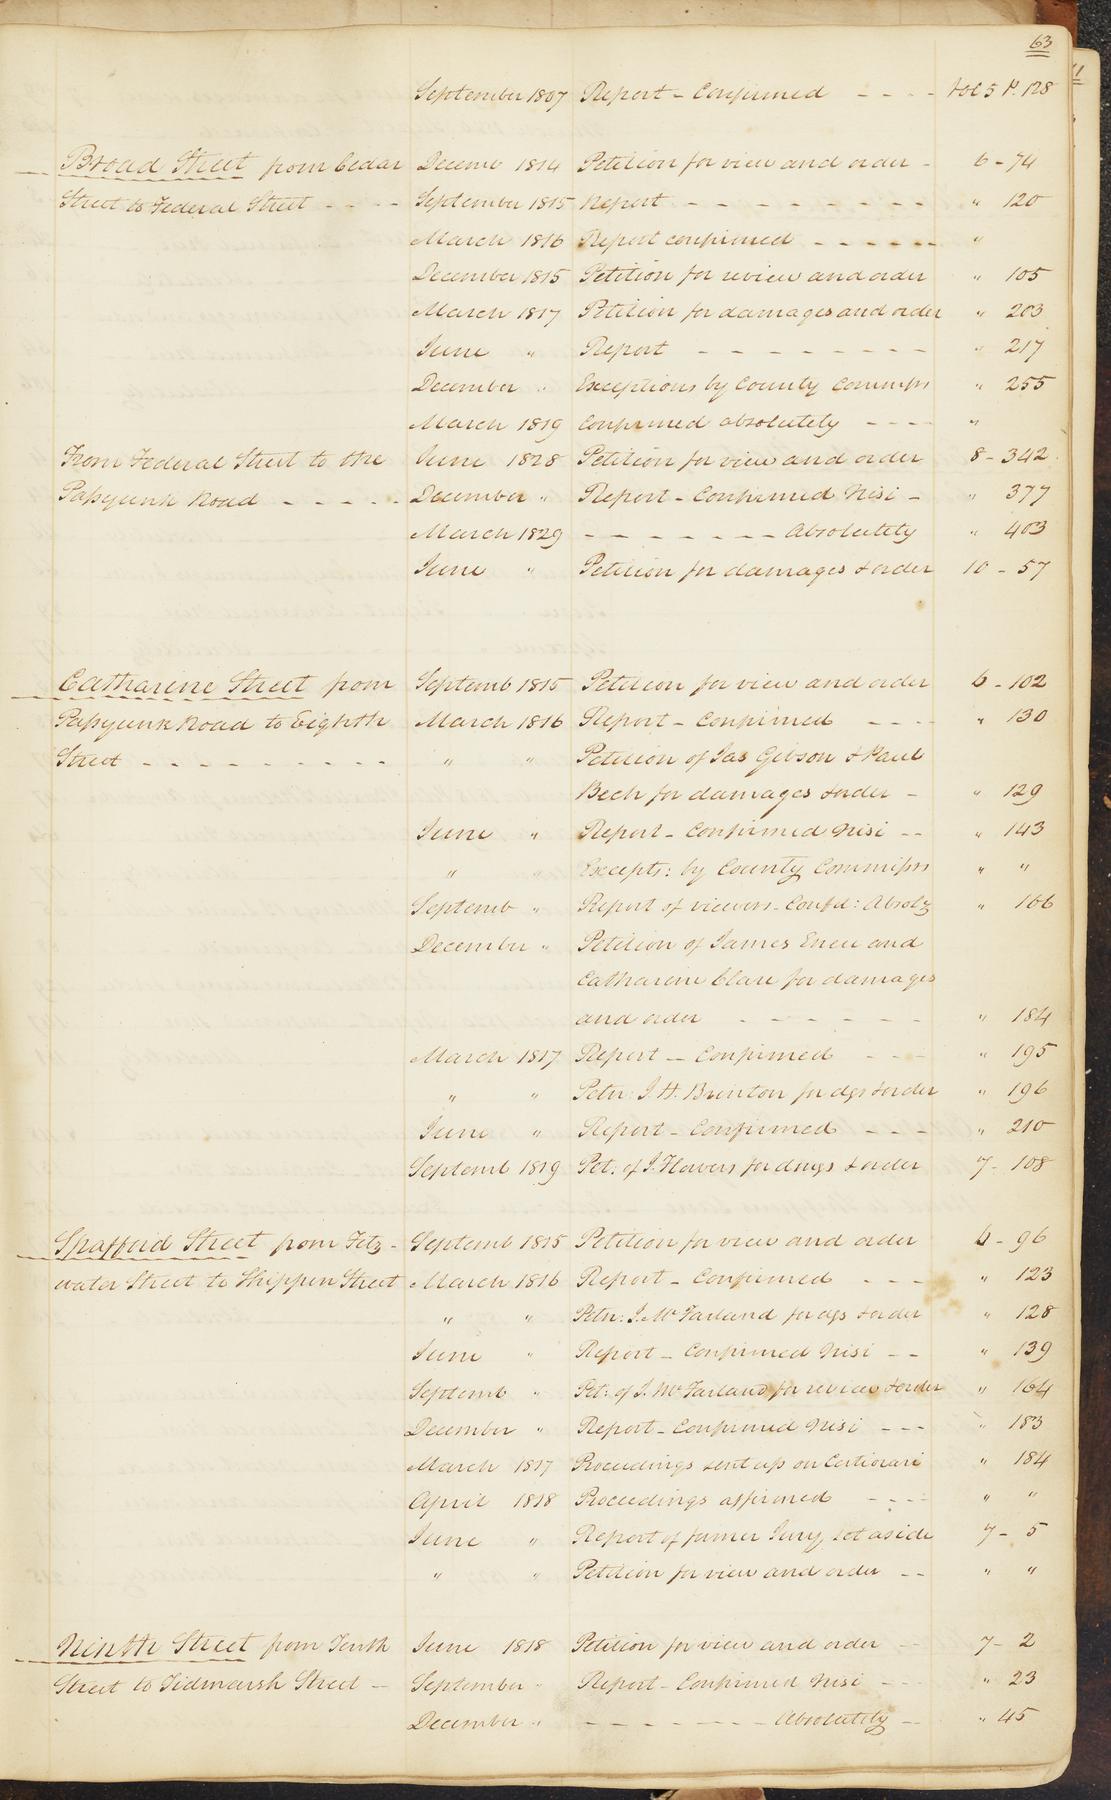 63
September 1807 Report - Confirmed - - - - Vol 5 P. 128
Broad Street from Cedar Decemb 1814 Petition for view and order - 6 - 74
Street to Federal Street - - - - September 1815 Report - - - - - - - - " 120
March 1816 Report confirmed - - - - - - "
December 1815 Petition for review and order " 105
March 1817 Petition for damages and order " 203
June " Report - - - - - - - - - " 217
December " Exceptions by County Commissrs " 255
March 1819 Confirmed absolutely - - - - "
From Federal Street to the June 1828 Petition for view and order 8 - 342
Passyunk Road - - - - - December " Report - Confirmed Nisi - " 377
March 1829 - - - - - - - - Absolutely " 403
June " Petition for damages & order 10 - 57
Catharine Street from Septemb 1815 Petition for view and order 6 - 102
Passyunk Road to Eighth March 1816 Report - Confirmed - - - - " 130
Street - - - - - - - - - - " " Petition of Jas Gibson & Paul
Beck for damages & order - " 129
June " Report - Confirmed Nisi - - " 143
" " Excepts: by County Commissrs " "
Septemb " Report of viewers - Confd: Absoly " 166
December " Petition of James Eneu and
Catharine Clare for damages
and order - - - - - - " 184
March 1817 Report - Confirmed - - - " 195
" " Petn: J. H. Brinton for dgs & order " 196
June " Report - Confirmed - - - - " 210
Septemb 1819 Pet: of J. Flowers for dmgs & order 7 - 108
Spafford Street from Fitz- Septemb 1815 Petition for view and order 6 - 96
water Street to Shippen Street March 1816 Report - Confirmed - - - - " 123
" " Petn: J. McFarland for dgs & order " 128
June " Report - Confirmed Nisi - - " 139
Septemb " Pet: of J. McFarland for review & order " 164
December " Report - Confirmed Nisi - - - " 183
March 1817 Proceedings sent up on Certiorari " 184
April 1818 Proceedings affirmed - - - - " "
June " Report of former Jury, set aside 7 - 5
" " Petition for view and order - - " "
Ninth Street from Tenth June 1818 Petition for view and order - - 7 - 2
Street to Tidmarsh Street - September " Report - Confirmed Nisi - - - " 23
December " - - - - - - - - Absolutely - - " 45